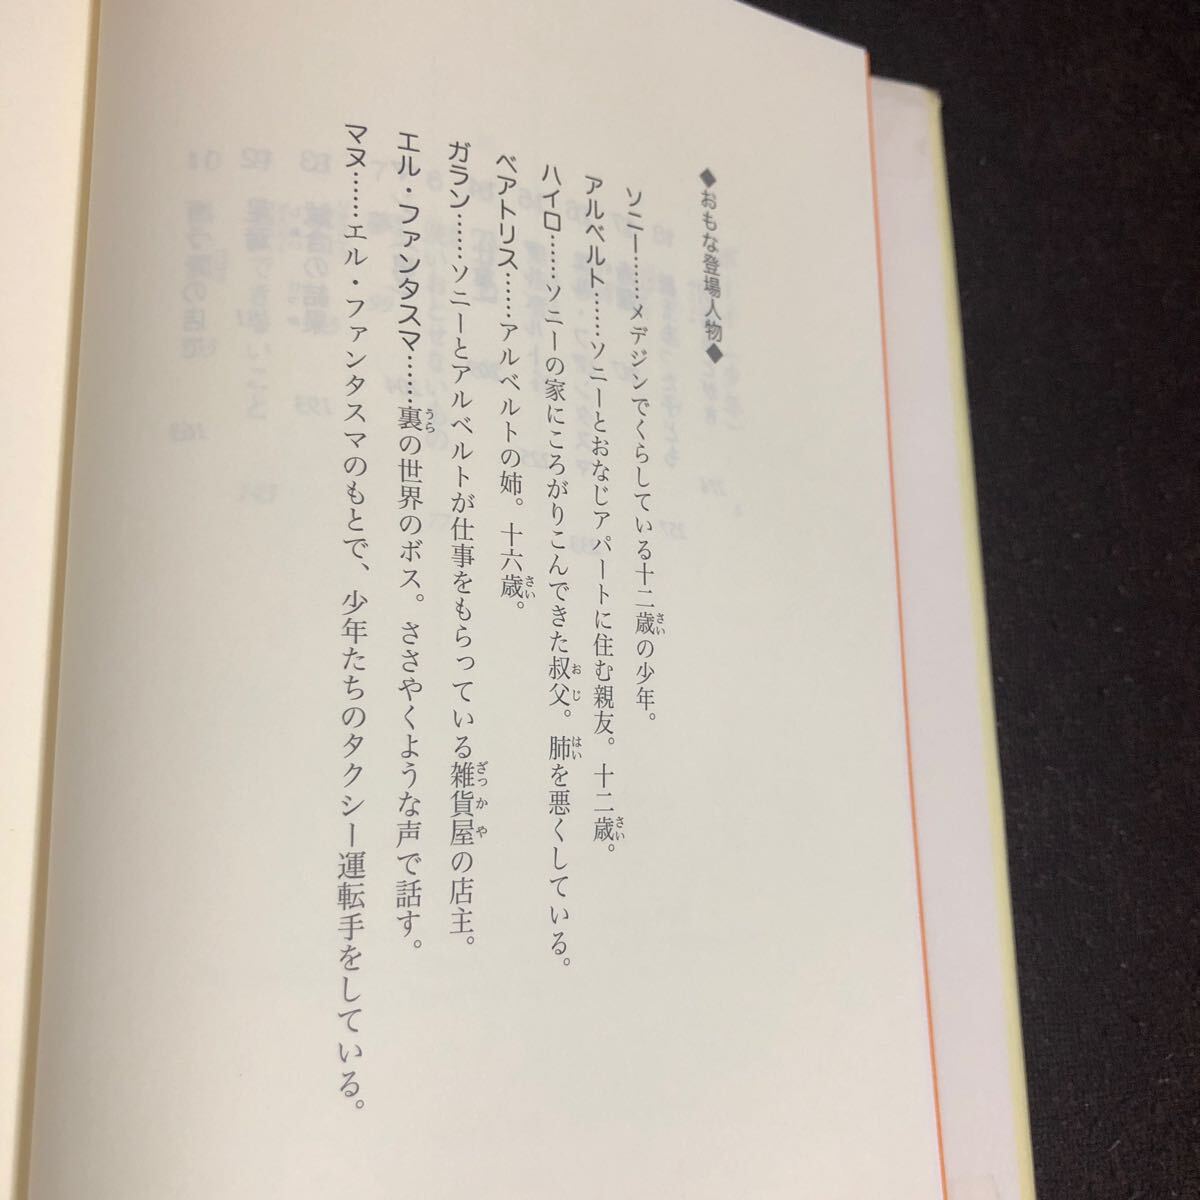 ◆おもな登場人物◆
ソニー……メデジンでくらしている十二歳の少年。
アルベルト……ソニーとおなじアパートに住む親友。十二歳。
ハイロ……ソニーの家にころがりこんできた叔父。肺を悪くしている。
ベアトリス……アルベルトの姉。十六歳。
ガラン……ソニーとアルベルトが仕事をもらっている雑貨屋の店主。
エル・ファンタスマ……裏の世界のボス。ささやくような声で話す。
マヌ……エル・ファンタスマのもとで、少年たちのタクシー運転手をしている。